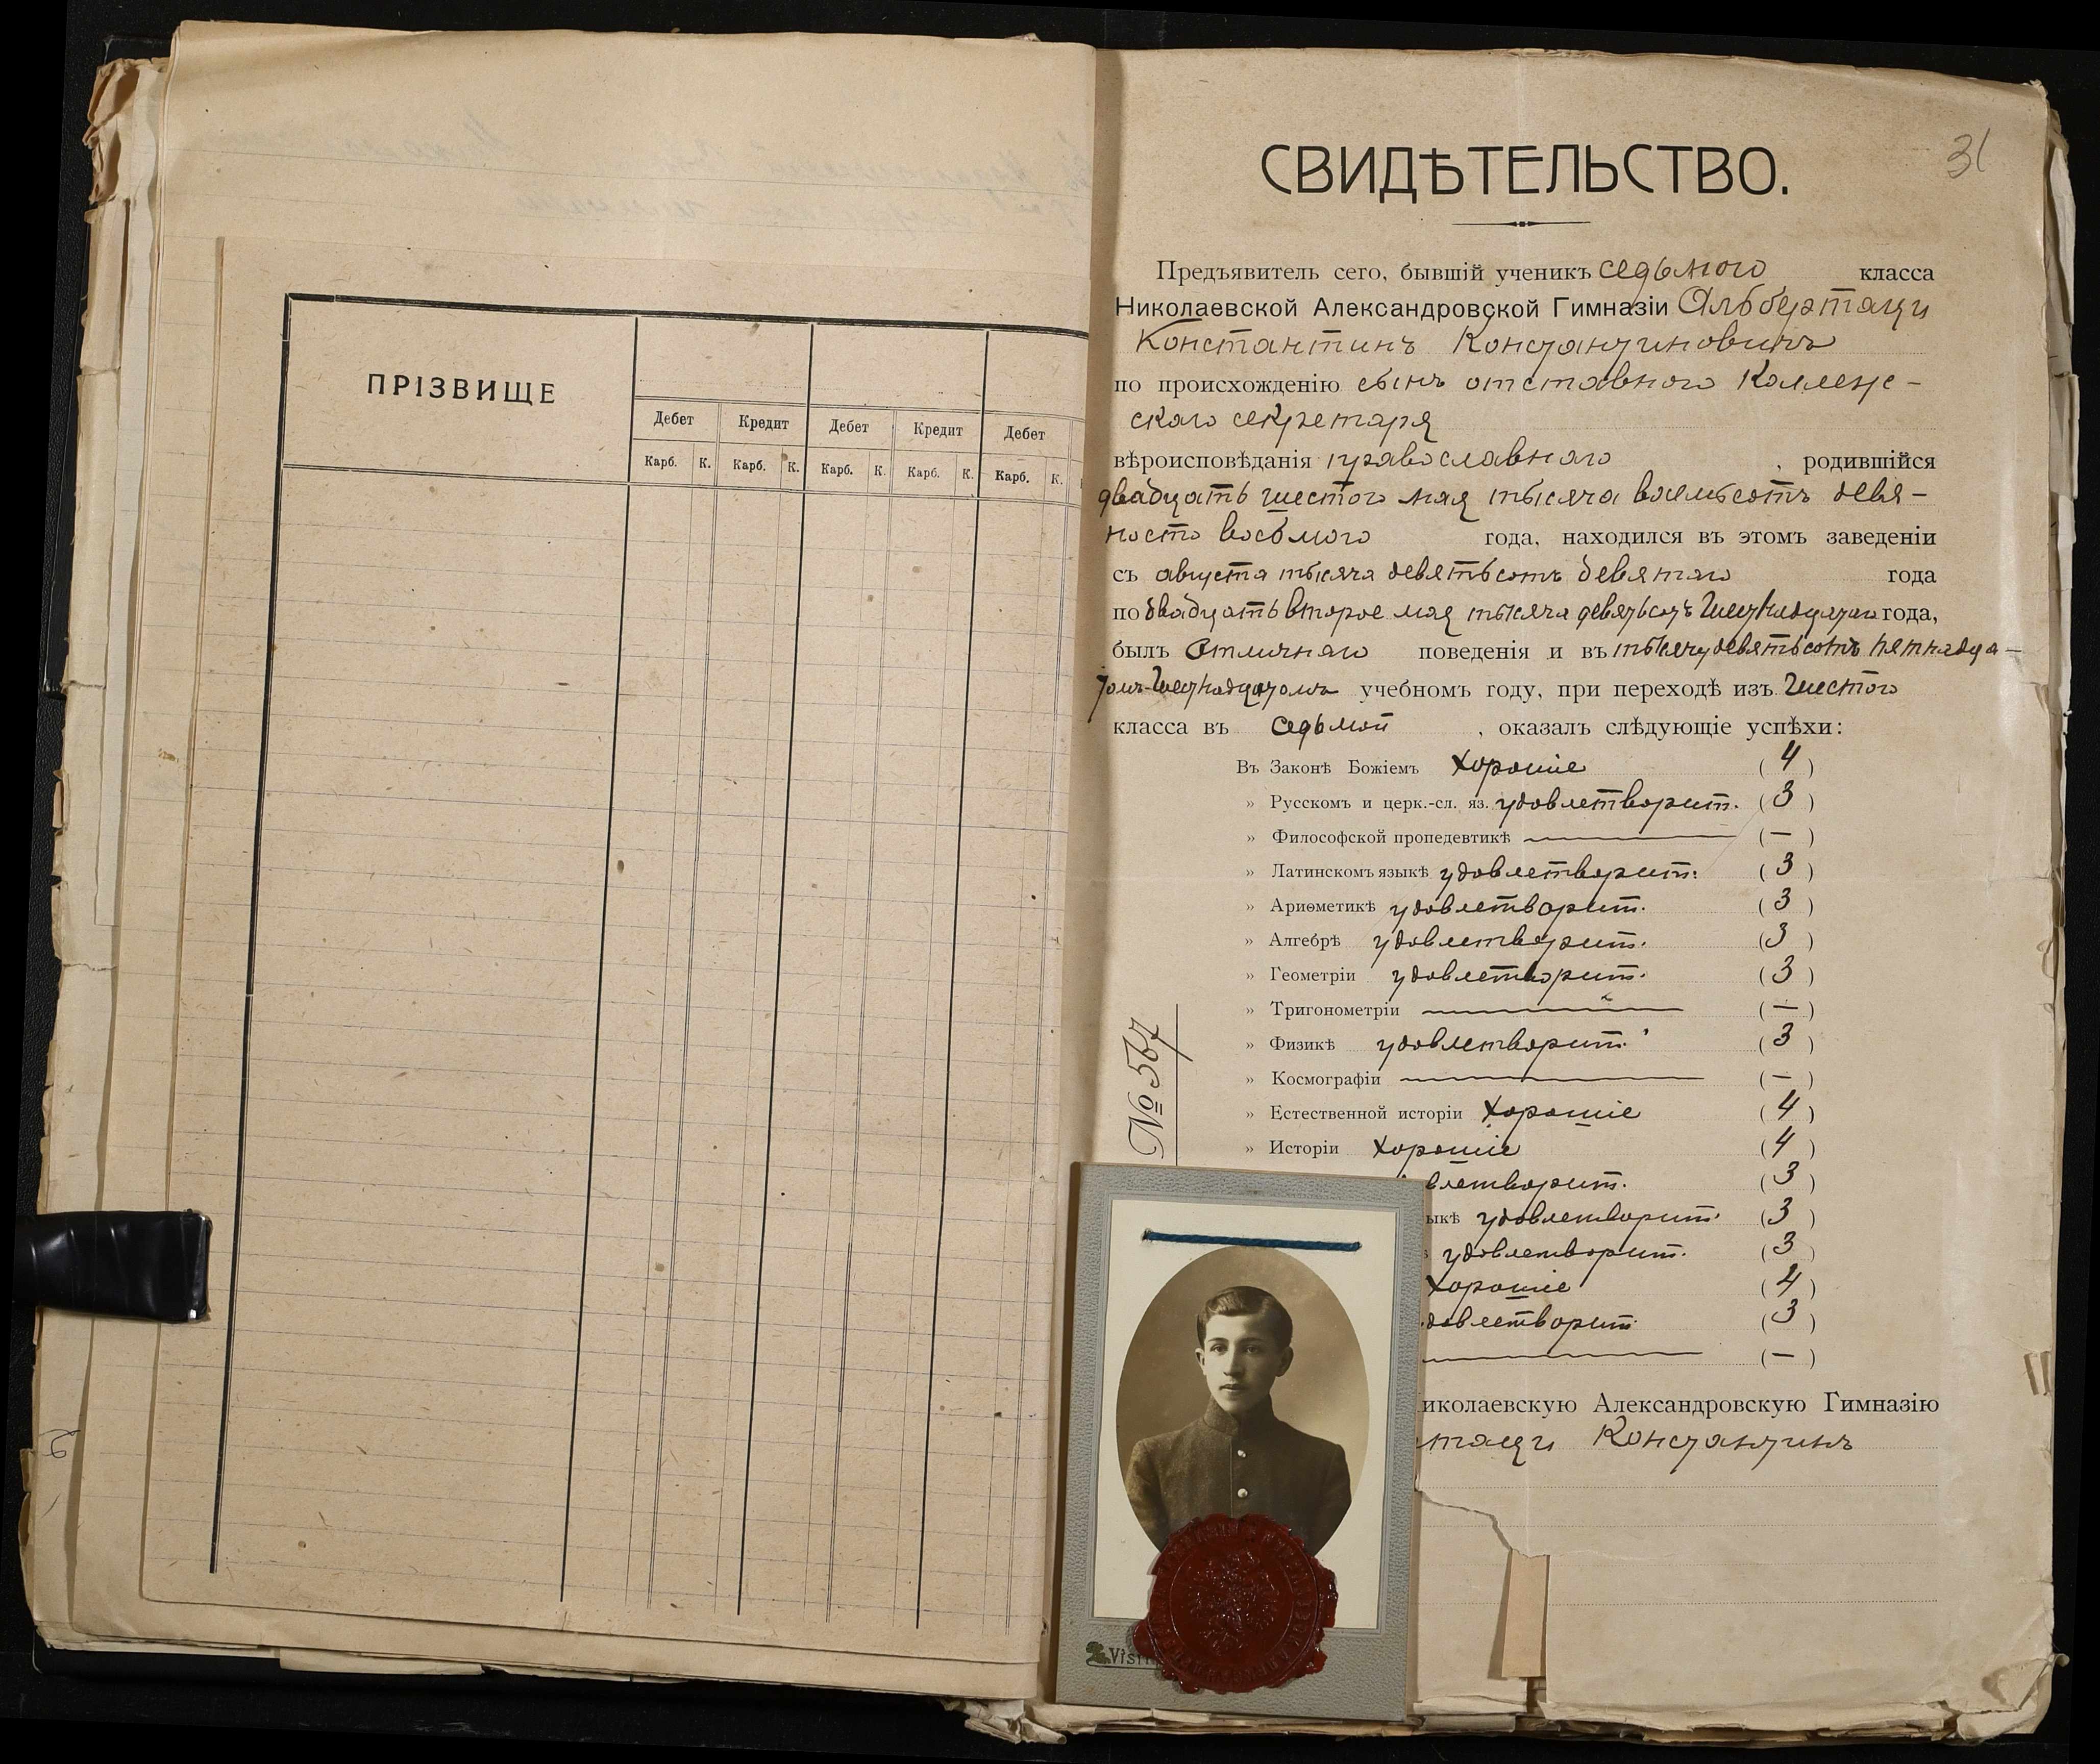 ПРІЗВИЩЕ
Дебет Кредит Дебет Кредит Дебет
Карб. К. Карб. К. Карб. К. Карб. К. Карб. К.
31
СВИДѢТЕЛЬСТВО.
Предъявитель сего, бывшій ученикъ седьмого класса
Николаевской Александровской Гимназіи Альбертаци
Константинъ Константиновичъ
по происхожденію сынъ отставного Коллеж-
скаго секретаря
вѣроисповѣданія православнаго, родившійся
двадцать шестого мая тысяча восемьсотъ девя-
носто восьмого года, находился въ этомъ заведеніи
съ августа тысяча девятьсотъ девятаго года
по двадцать второе мая тысяча девятьсотъ шестнадцатаго года,
былъ отличнаго поведенія и въ тысячу девятьсотъ пятнадца-
томъ-шестнадцатомъ учебномъ году, при переходѣ изъ шестого
класса въ седьмой, оказалъ слѣдующіе успѣхи:
Въ Законѣ Божіемъ хорошіе (4)
» Русскомъ и церк.-сл. яз. удовлетворит. (3)
» Философской пропедевтикѣ — (—)
» Латинскомъ языкѣ удовлетворит. (3)
» Ариѳметикѣ удовлетворит. (3)
» Алгебрѣ удовлетворит. (3)
» Геометріи удовлетворит. (3)
» Тригонометріи — (—)
» Физикѣ удовлетворит. (3)
» Космографіи — (—)
» Естественной исторіи хорошіе (4)
» Исторіи хорошіе (4)
влетворит. (3)
ыкѣ удовлетворит. (3)
удовлетворит. (3)
хорошіе (4)
довлетворит. (3)
— (—)
иколаевскую Александровскую Гимназію
таци Константинъ
№ 567
Visit